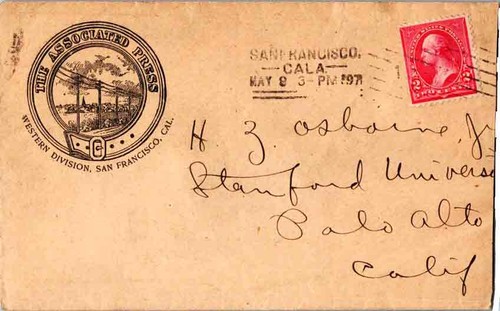 THE ASSOCIATED PRESS
WESTERN DIVISION, SAN FRANCISCO, CAL.
SAN FRANCISCO,
CALA
MAY 8 3-PM
H Z Osborne, Jr
Stanford Univers
Palo Alto
Calif